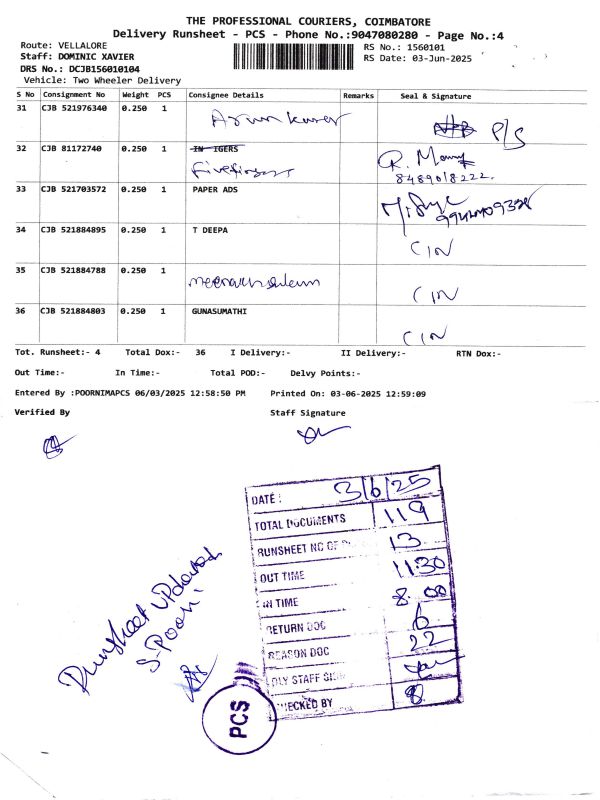 THE PROFESSIONAL COURIERS, COIMBATORE
Delivery Runsheet - PCS - Phone No.:9047080280 - Page No.:4
Route: VELLALORE
Staff: DOMINIC XAVIER
DRS No.: DCJB156010104
Vehicle: Two Wheeler Delivery
RS No.: 1560101
RS Date: 03-Jun-2025
S No Consignment No Weight PCS Consignee Details Remarks Seal & Signature
31 CJB 521976340 0.250 1 Arunkumar P/S
32 CJB 81172740 0.250 1 IN IGERS
Fivefingers R. Many
8489018222.
33 CJB 521703572 0.250 1 PAPER ADS
34 CJB 521884895 0.250 1 T DEEPA CIN
35 CJB 521884788 0.250 1 CIN
36 CJB 521884803 0.250 1 GUNASUMATHI CIN
Tot. Runsheet:- 4 Total Dox:- 36 I Delivery:- II Delivery:- RTN Dox:-
Out Time:- In Time:- Total POD:- Delvy Points:-
Entered By :POORNIMAPCS 06/03/2025 12:58:50 PM Printed On: 03-06-2025 12:59:09
Verified By Staff Signature
DATE : 3/6/25
TOTAL DOCUMENTS 119
RUNSHEET NO OF 13
OUT TIME 11:30
IN TIME 8.00
RETURN DOC 6
REASON DOC 22
DLY STAFF SIGN
CHECKED BY
Runsheet updated
S. Poori
PCS